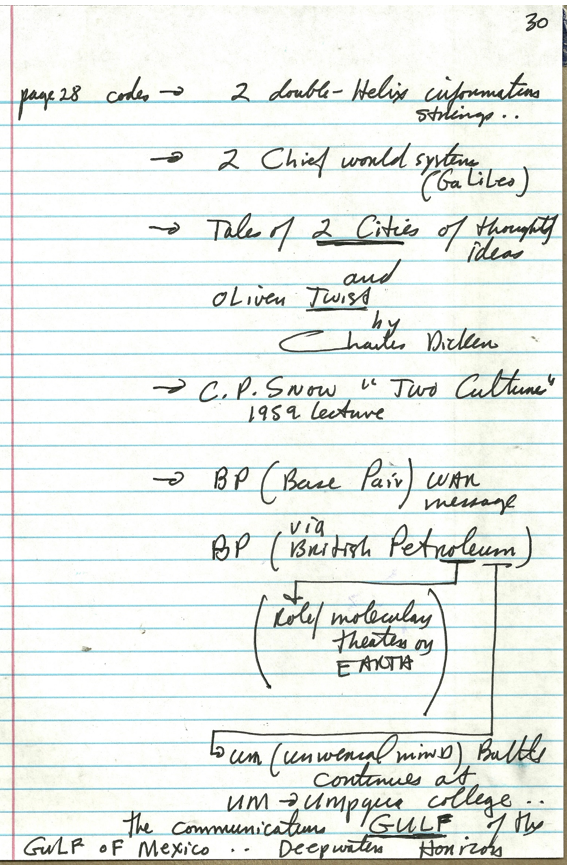 30
page 28 codes → 2 double-Helix information
strings..
→ 2 Chief world system
(GaLiLeo)
→ Tales of 2 Cities of thought
ideas
and
OLiver Twist
by
Charles Dicken
→ C.P. Snow "Two Cultures"
1959 lecture
→ BP (Base Pair) WAR
message
via
BP (British Petroleum)
(Role/molecular
theater on
EARTH)
→ um (universal mind) Battle
continues at
UM → Umpqua college..
the communications GULF of the
GuLF oF Mexico .. Deepwater Horizon